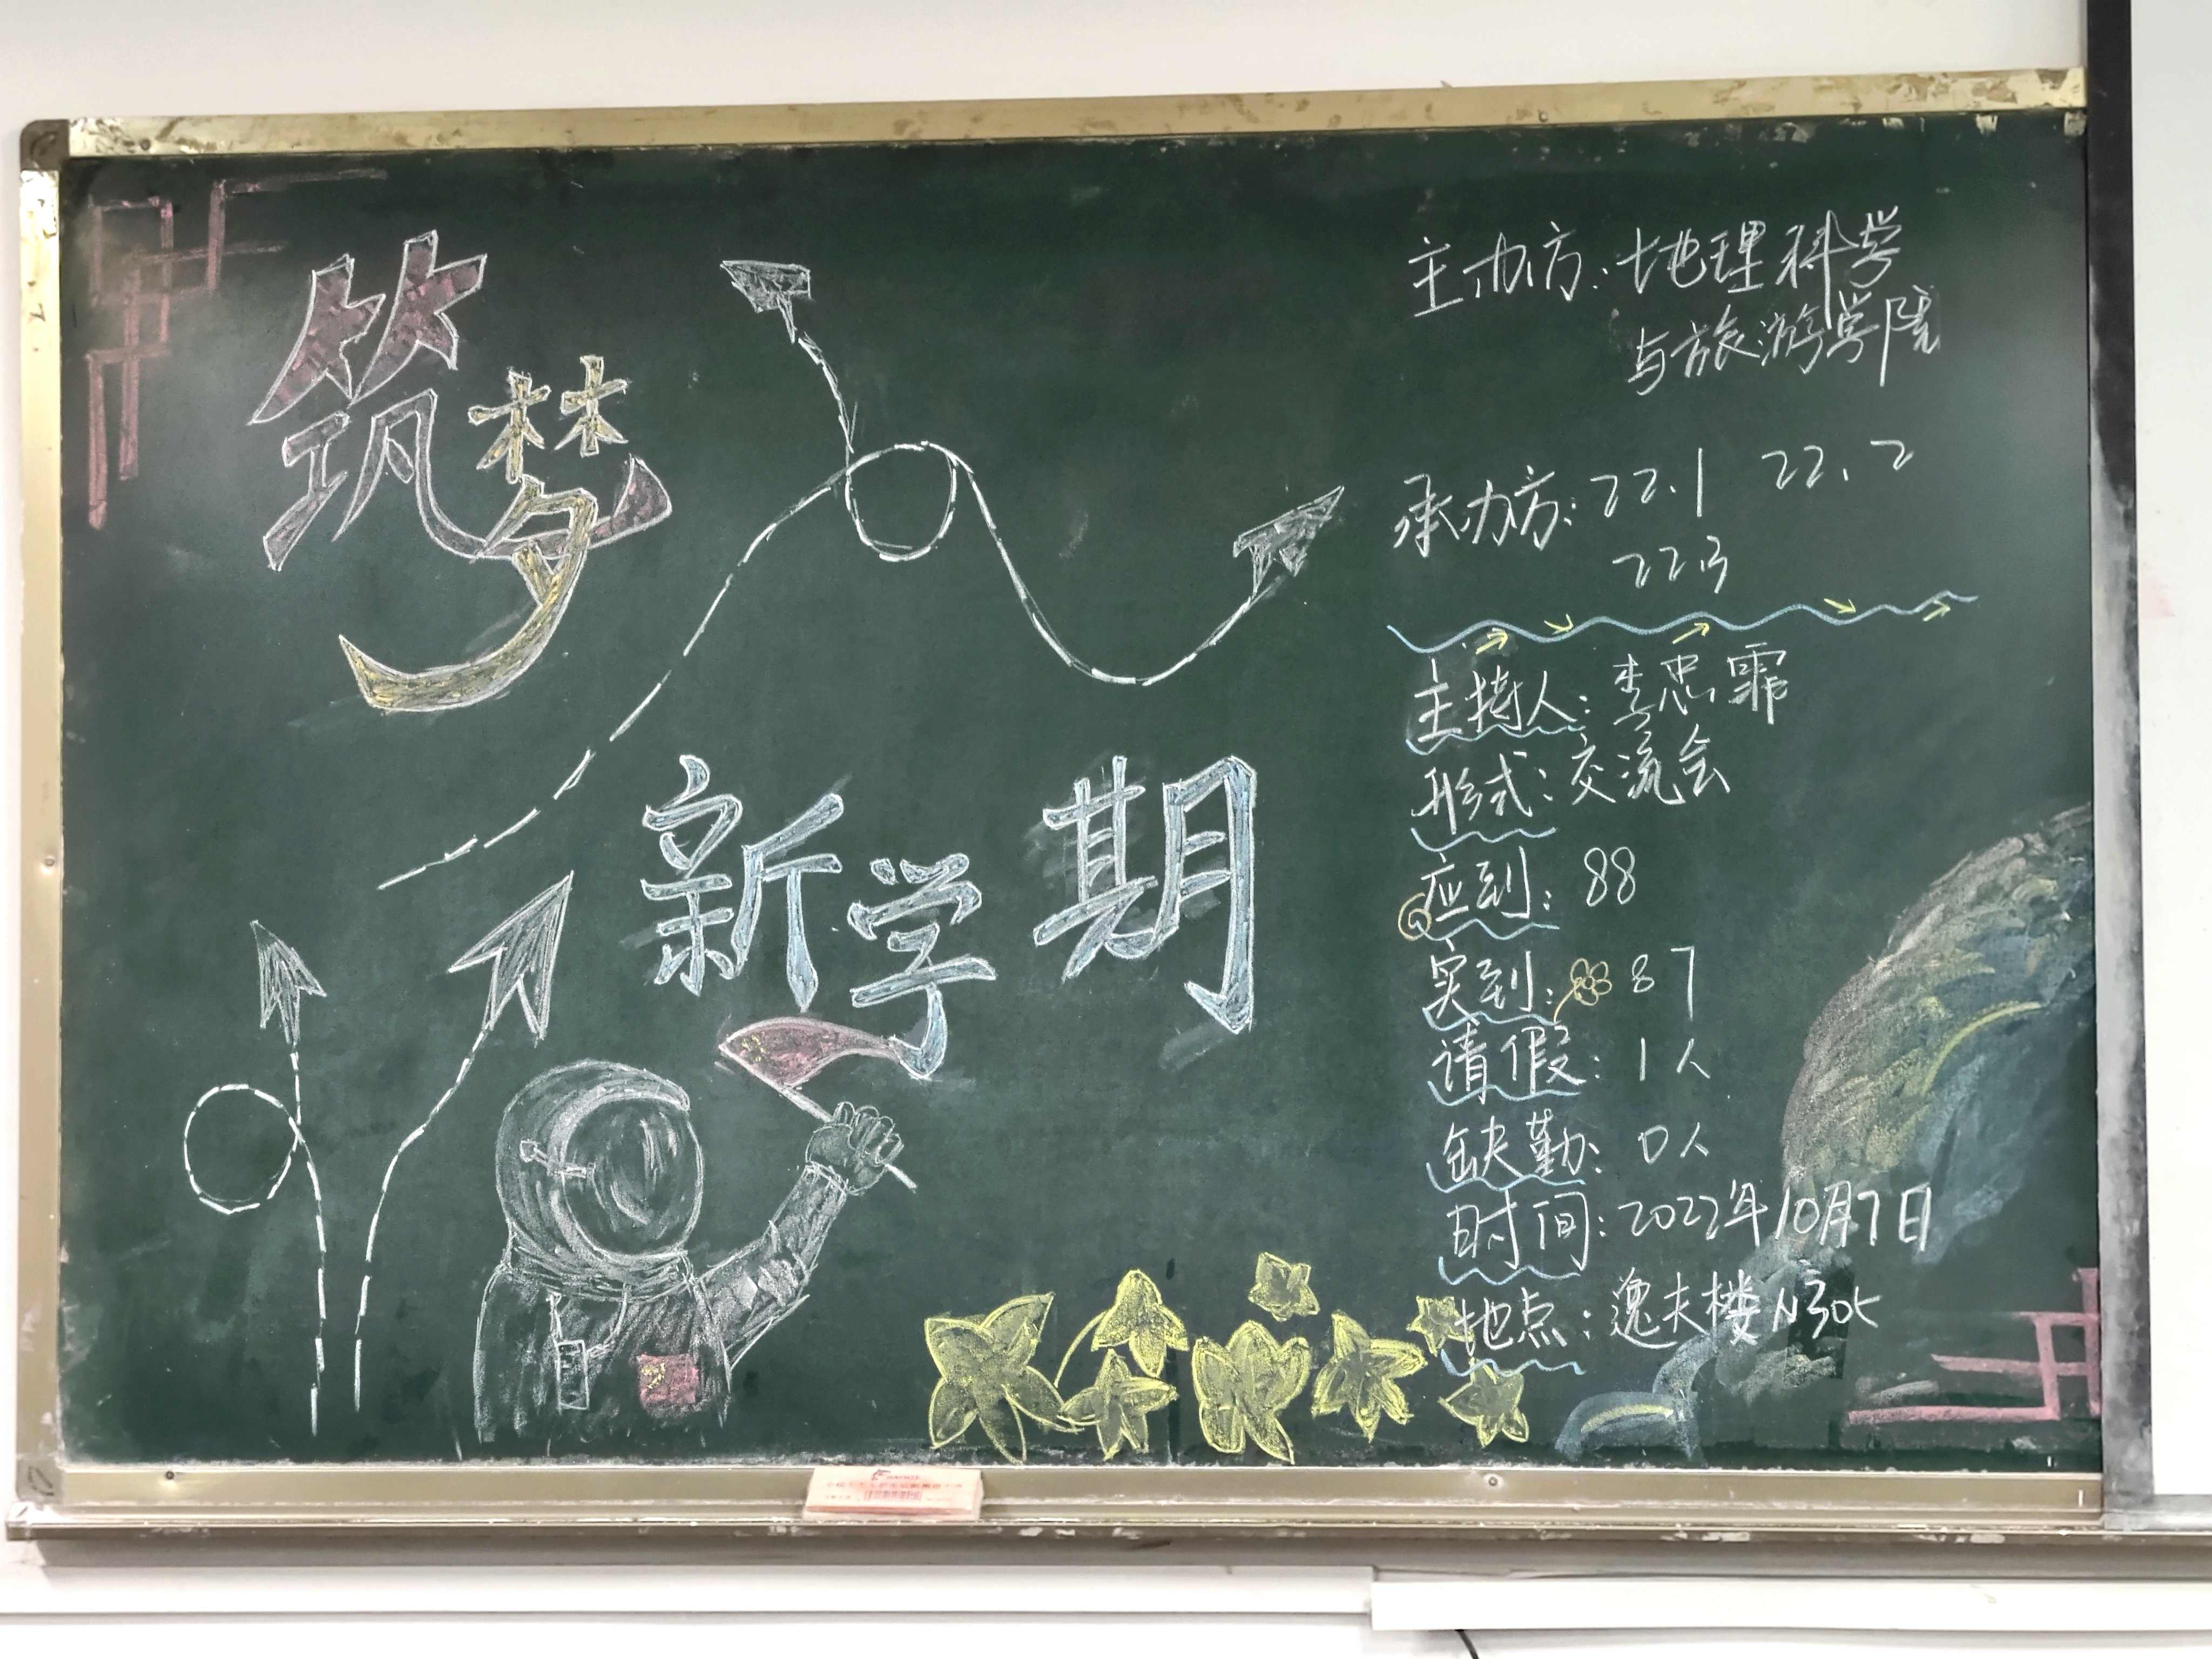 筑梦
新学期
主办方:地理科学
与旅游学院
承办方:22.1 22.2
22.3
主持人:李忠霏
形式:交流会
应到:88
实到:87
请假:1人
缺勤:0人
时间:2022年10月7日
地点:逸夫楼N305